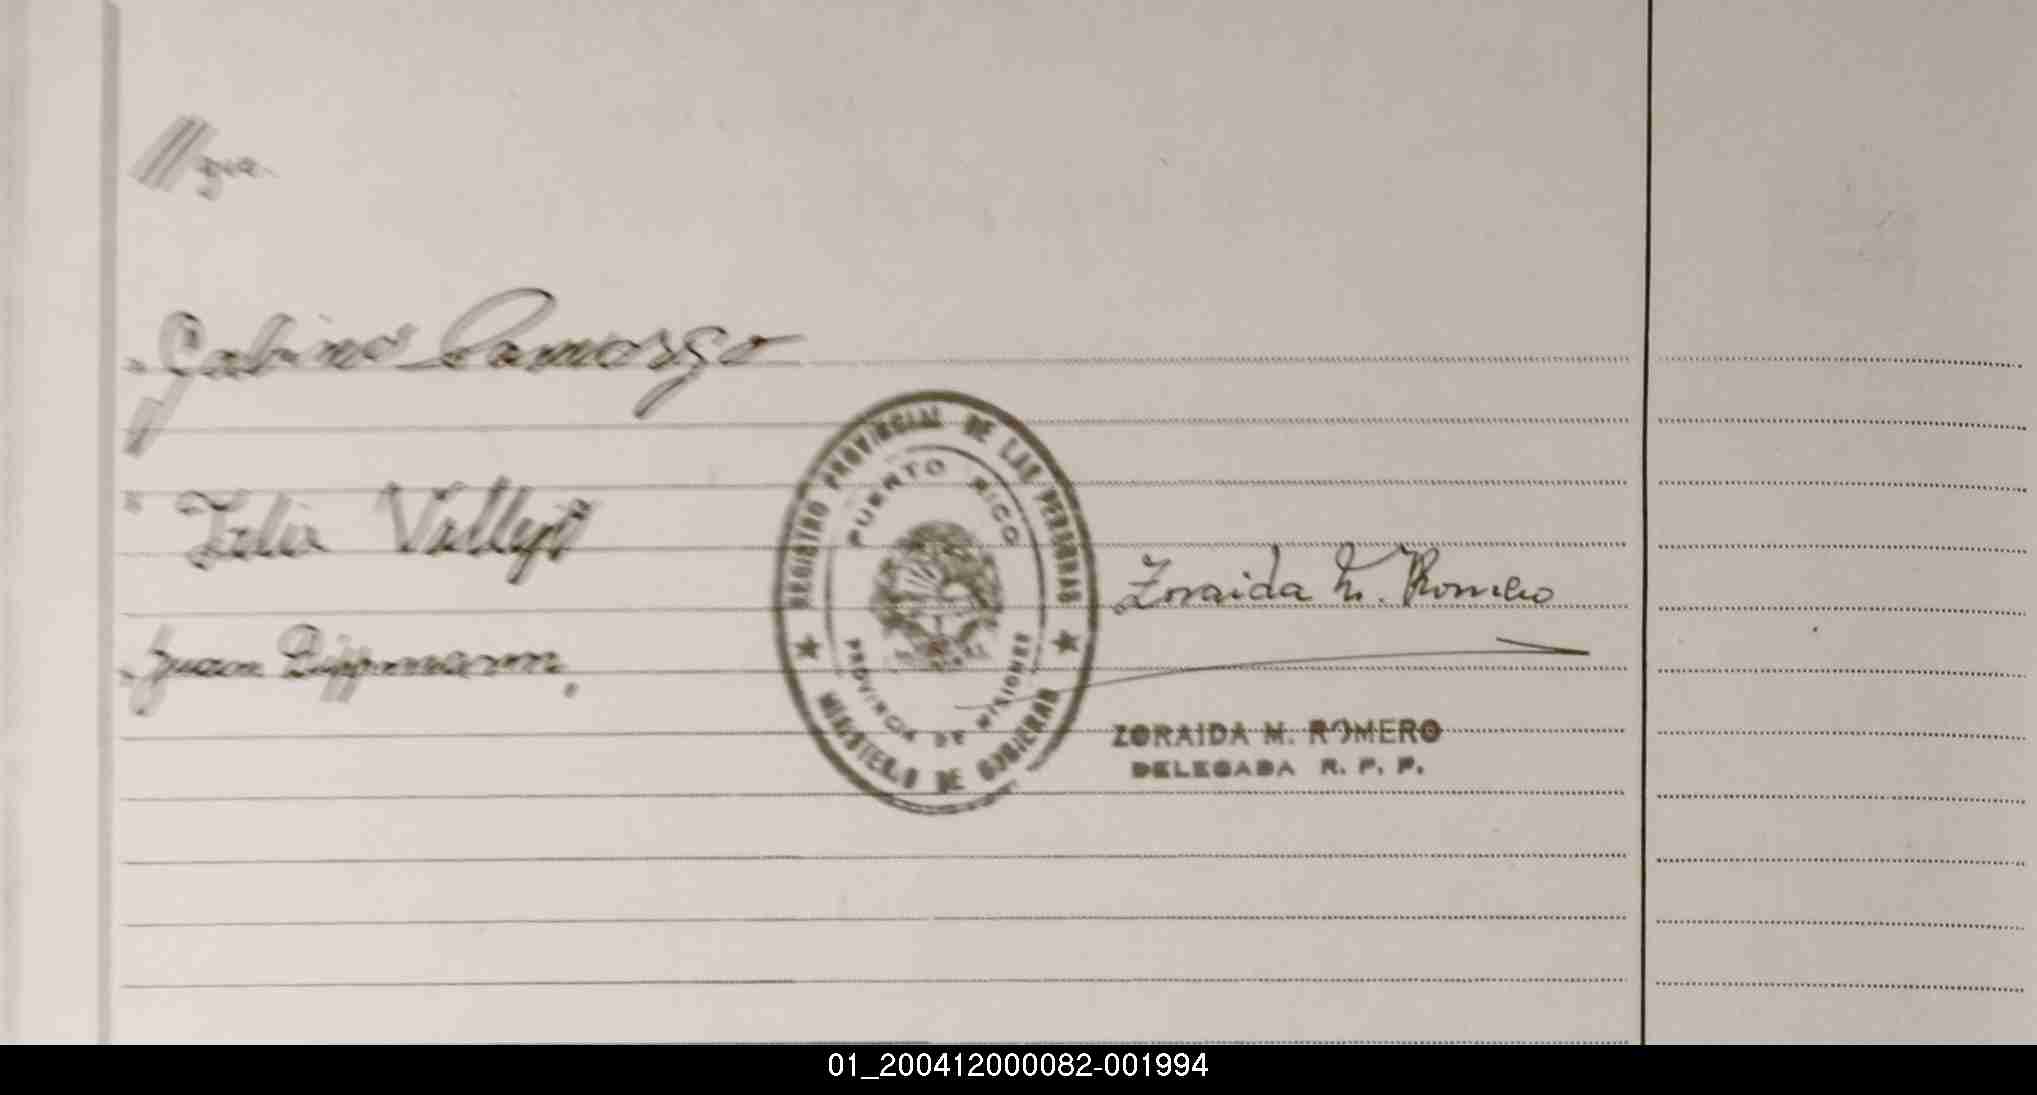 Gabino Camargo
Julia Vallejos
Juan Bippmann
REGISTRO PROVINCIAL DE LAS PERSONAS
PUERTO RICO
PROVINCIA DE MISIONES
MINISTERIO DE GOBIERNO
Zoraida M. Romero
ZORAIDA M. ROMERO
DELEGADA R. P. P.
01_200412000082-001994